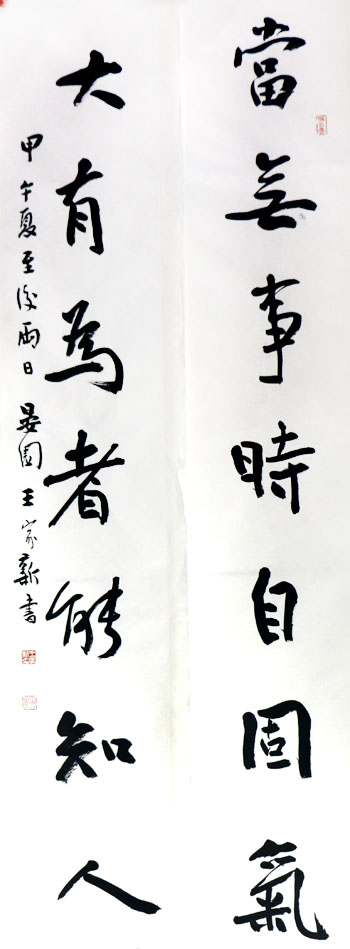 當無事時自固氣
大有為者能知人
甲午夏至後兩日 晏園王家新書